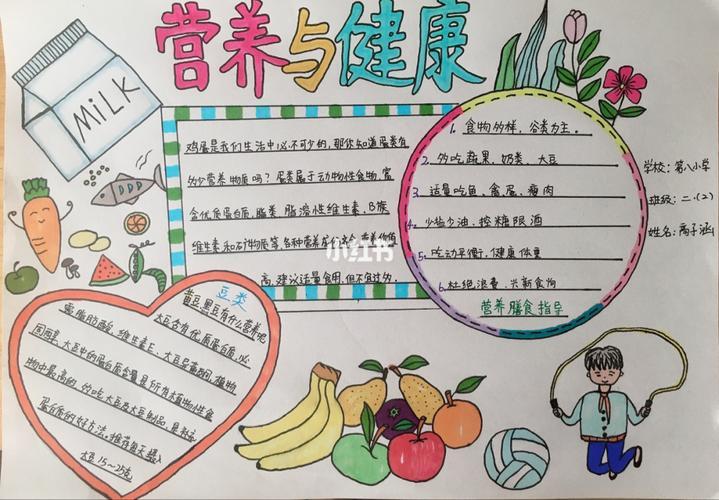 营养与健康
MiLK
鸡蛋是我们生活中必不可少的,那你知道蛋类有
多少营养物质吗?蛋类属于动物性食物,富
含优质蛋白质,脂类 脂溶性维生素、B族
维生素和矿物质等,各种营养成份齐全 营养价值
高.建议适量食用,但不宜过多。
1. 食物多样,谷类为主。
2. 多吃蔬果、奶类、大豆
3. 适量吃鱼、禽、蛋、瘦肉
4. 少盐少油、控糖限酒
5. 吃动平衡,健康体重
6. 杜绝浪费、兴新食尚
营养膳食指导
学校:第八小学
班级:二.(2)
姓名:蒋子涵
小红书
豆类
黄豆,黑豆有什么营养呢
大豆含有优质蛋白质,必
需脂肪酸,维生素E、大豆
固醇,大豆中的蛋白质含量是所有植物性食
物中最高的,多吃大豆及大豆制品,是补充
蛋白质的好方法.推荐每天摄入
大豆15~25克